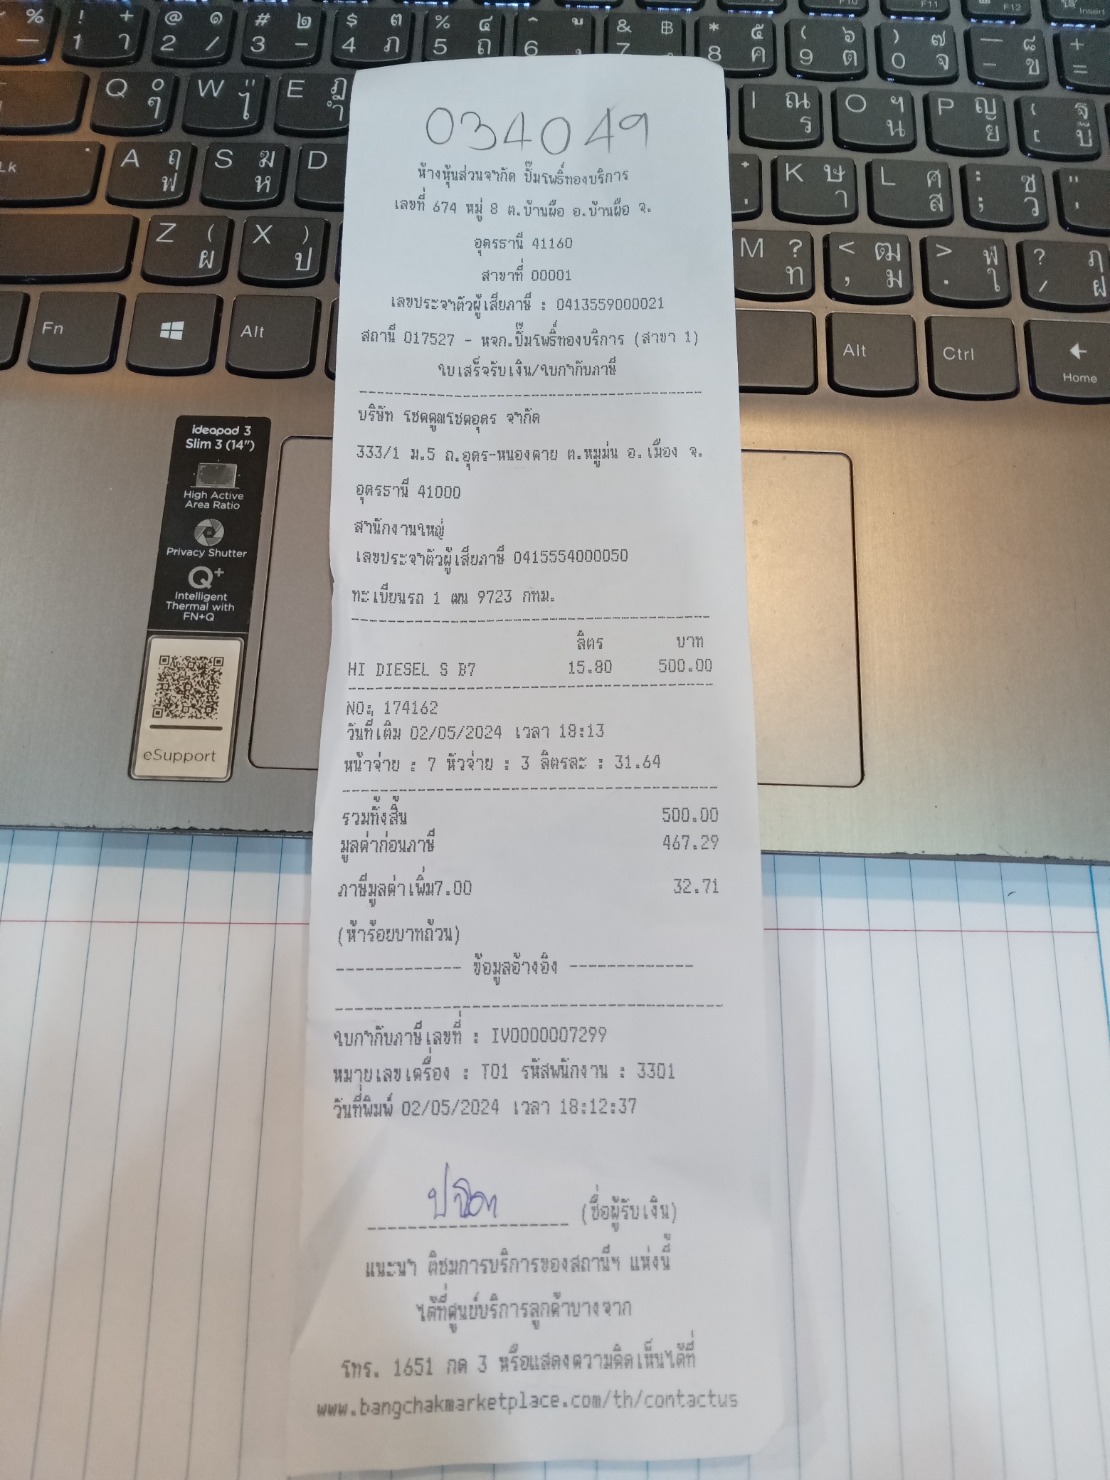 034049
ห้างหุ้นส่วนจำกัด ปั๊มโพธิ์ทองบริการ
เลขที่ 674 หมู่ 8 ต.บ้านผือ อ.บ้านผือ จ.
อุดรธานี 41160
สาขาที่ 00001
เลขประจำตัวผู้เสียภาษี : 0413559000021
สถานี 017527 - หจก.ปั๊มโพธิ์ทองบริการ (สาขา 1)
ใบเสร็จรับเงิน/ใบกำกับภาษี
บริษัท โชคคูณโชคอุดร จำกัด
333/1 ม.5 ถ.อุดร-หนองคาย ต.หมูม่น อ.เมือง จ.
อุดรธานี 41000
สำนักงานใหญ่
เลขประจำตัวผู้เสียภาษี 0415554000050
ทะเบียนรถ 1 ฒน 9723 กทม.
ลิตร บาท
HI DIESEL S B7 15.80 500.00
NO: 174162
วันที่เติม 02/05/2024 เวลา 18:13
หน้าจ่าย : 7 หัวจ่าย : 3 ลิตรละ : 31.64
รวมทั้งสิ้น 500.00
มูลค่าก่อนภาษี 467.29
ภาษีมูลค่าเพิ่ม7.00 32.71
(ห้าร้อยบาทถ้วน)
------------- ข้อมูลอ้างอิง -------------
ใบกำกับภาษีเลขที่ : IV0000007299
หมายเลขเครื่อง : T01 รหัสพนักงาน : 3301
วันที่พิมพ์ 02/05/2024 เวลา 18:12:37
(ชื่อผู้รับเงิน)
แนะนำ ติชมการบริการของสถานีฯ แห่งนี้
ได้ที่ศูนย์บริการลูกค้าบางจาก
โทร. 1651 กด 3 หรือแสดงความคิดเห็นได้ที่
www.bangchakmarketplace.com/th/contactus
ideapad 3
Slim 3 (14")
High Active
Area Ratio
Privacy Shutter
Q+
Intelligent
Thermal with
FN+Q
eSupport